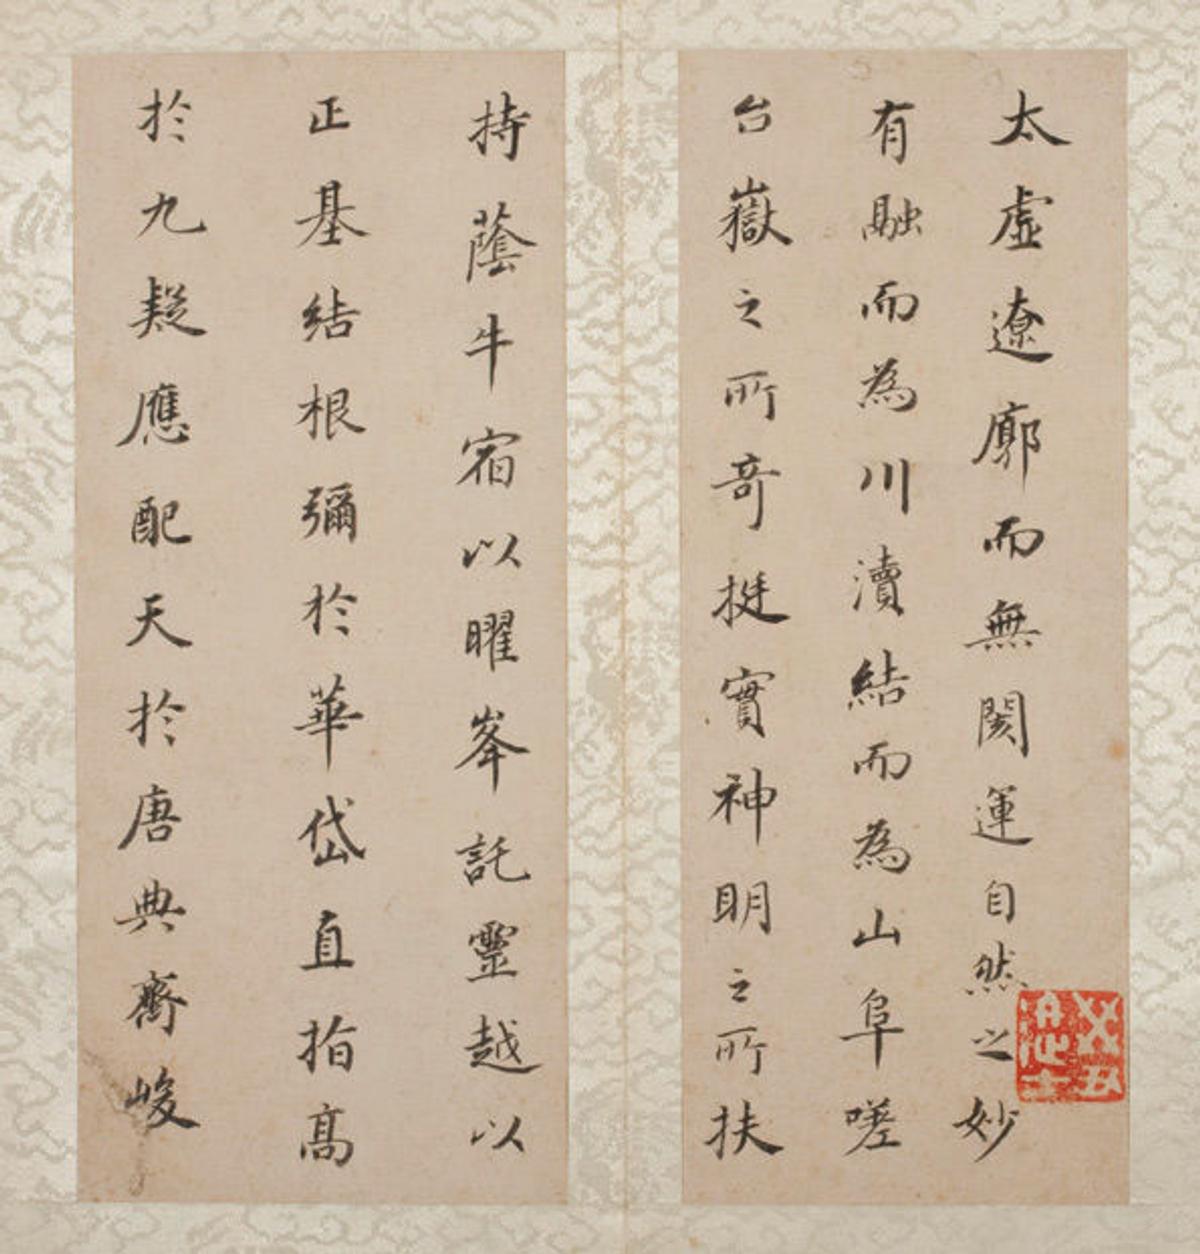 太虛遼廓而無閡運自然之妙
有融而為川瀆結而為山阜嗟
台嶽之所奇挺實神明之所扶
持蔭牛宿以曜峯託靈越以
正基結根彌於華岱直指髙
於九疑應配天於唐典齊峻